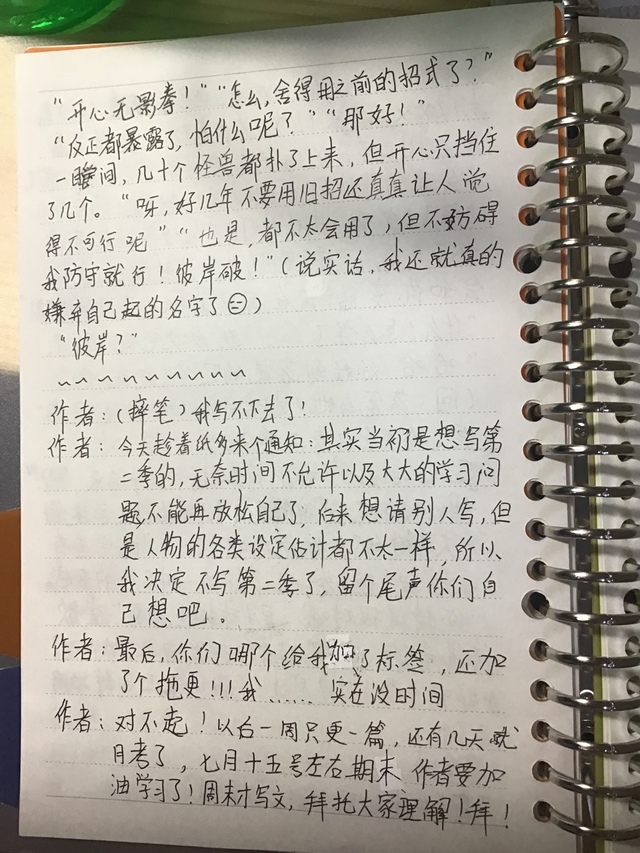 “开心无影拳！”“怎么,舍得用之前的招式了？”
“反正都暴露了,怕什么呢？”“那好！”
一瞬间,几十个怪兽都扑了上来,但开心只挡住
了几个。“呀,好几年不要用旧招还真真让人觉
得不可行呢”“也是,都不太会用了,但不妨碍
我防守就行！彼岸破！”(说实话,我还就真的
嫌弃自己起的名字了)
“彼岸？”
~~~~~~~~~
作者：(摔笔)我写不下去了！
作者：今天趁着纸多来个通知：其实当初是想写第
二季的,无奈时间不允许以及大大的学习问
题,不能再放松自己了,后来想请别人写,但
是人物的各类设定估计都不太一样,所以
我决定不写第二季了,留个尾声你们自
己想吧。
作者：最后,你们哪个给我加了标签,还加
了个拖更!!!我……实在没时间
作者：对不起！以后一周只更一篇,还有几天就
月考了,七月十五号左右期末 作者要加
油学习了！周末才写文,拜托大家理解！拜！